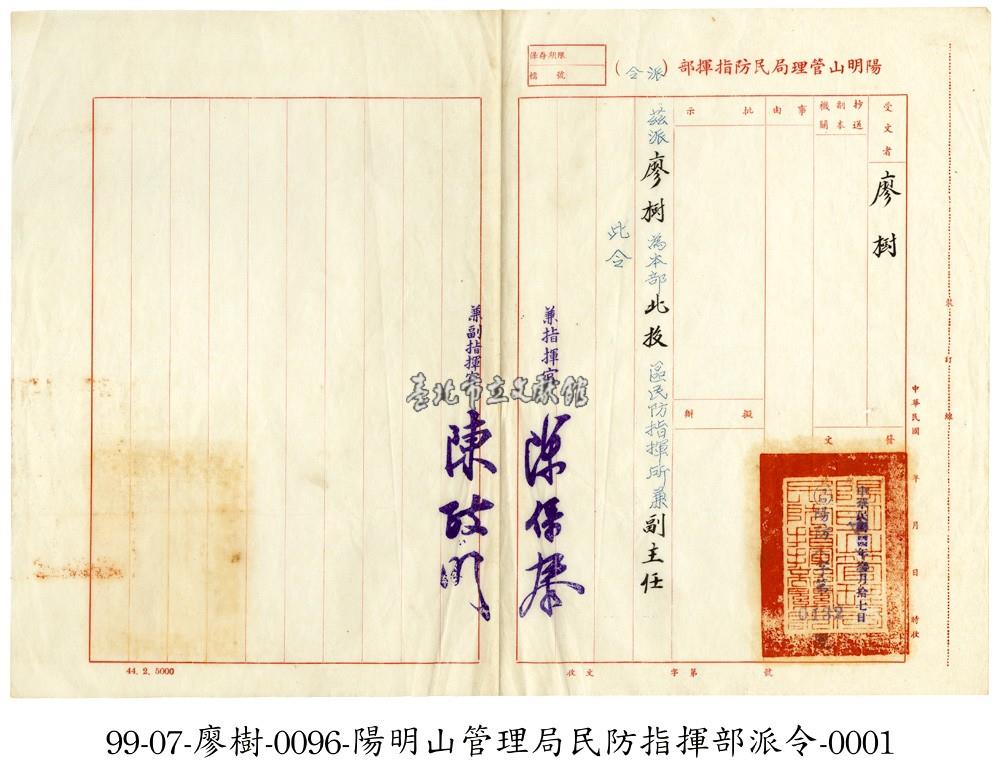 陽明山管理局民防指揮部（派令）
保存期限
檔號
受文者
廖樹
抄送
副本
機關
事由
批示
擬辦
發文
茲派廖樹為本部北投區民防指揮所兼副主任
此令
兼指揮官
兼副指揮官 陳政
臺北市立文獻館
中華民國 年 月 日 時收
裝訂線
0132
收文 字第 號
44. 2. 5000
99-07-廖樹-0096-陽明山管理局民防指揮部派令-0001